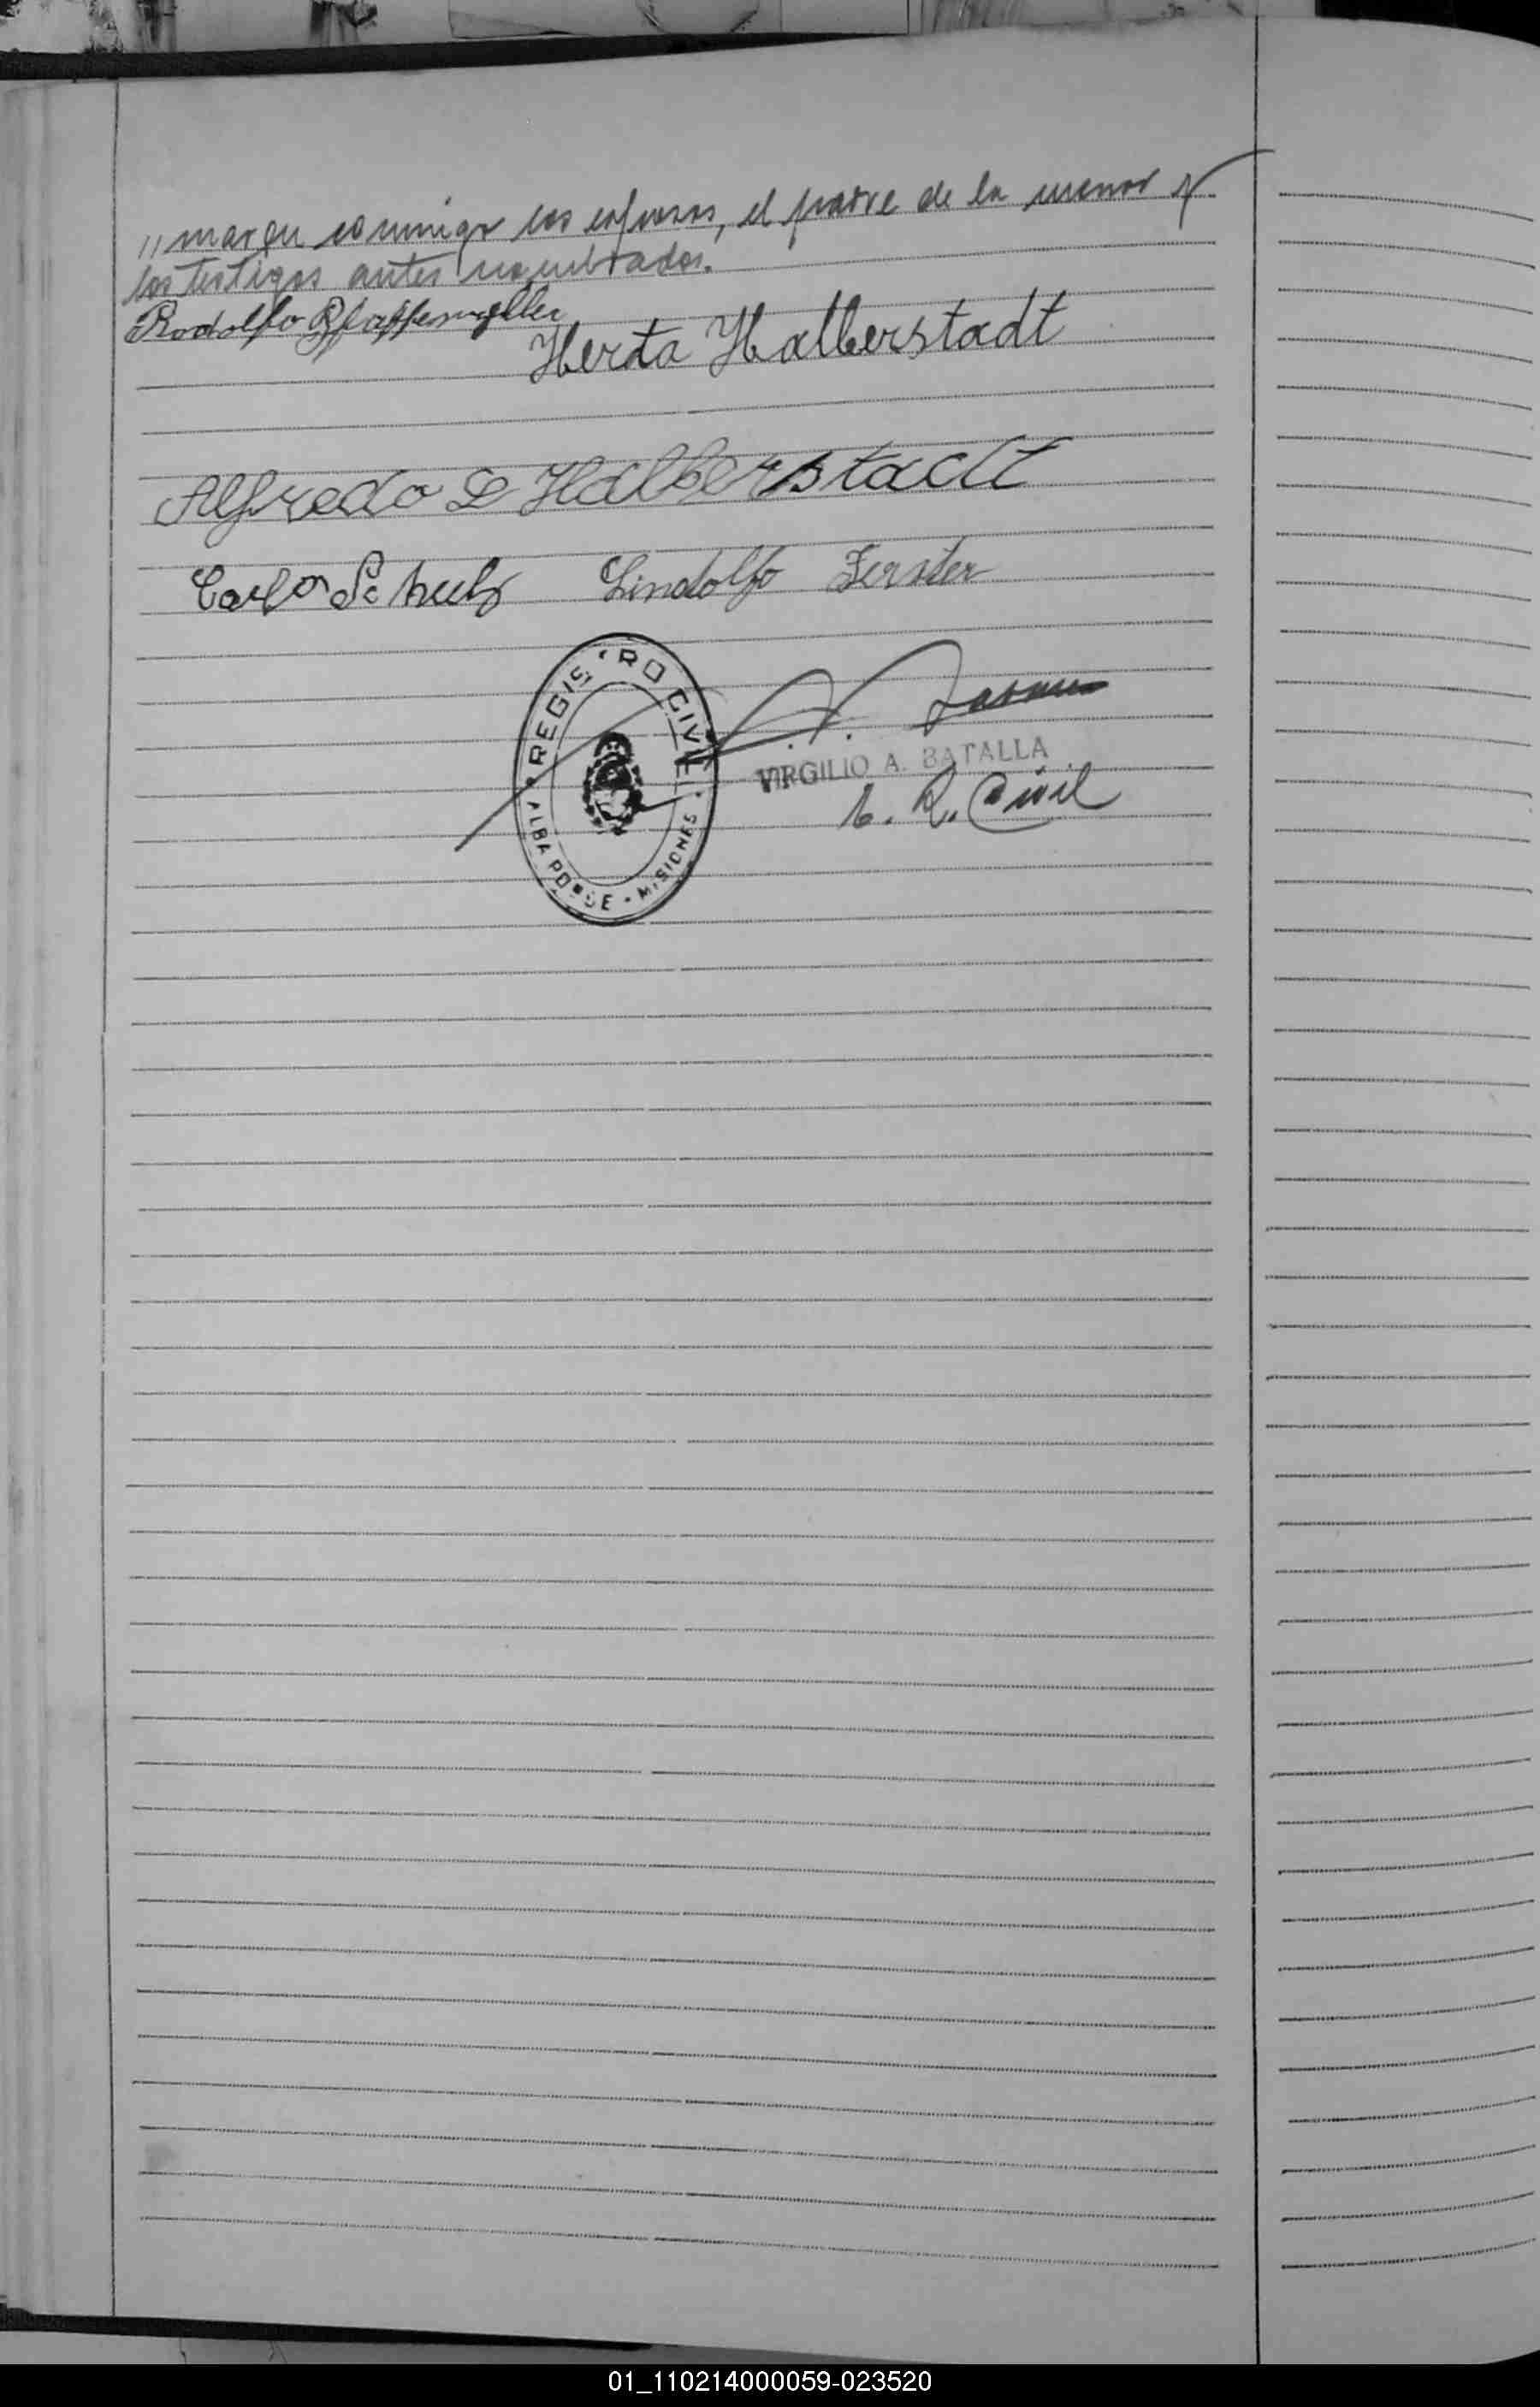 // man con conmigo los esposos, el padre de la menor y
los testigos antes nombrados.
Rodolfo Pfaffenzeller
Herta Halberstadt
Alfredo L Halberstadt
Carlos Schulz Lindolfo Ferster
REGISTRO CIVIL
ALBA POSSE - MISIONES
VIRGILIO A. BATALLA
R. Civil
01_110214000059-023520